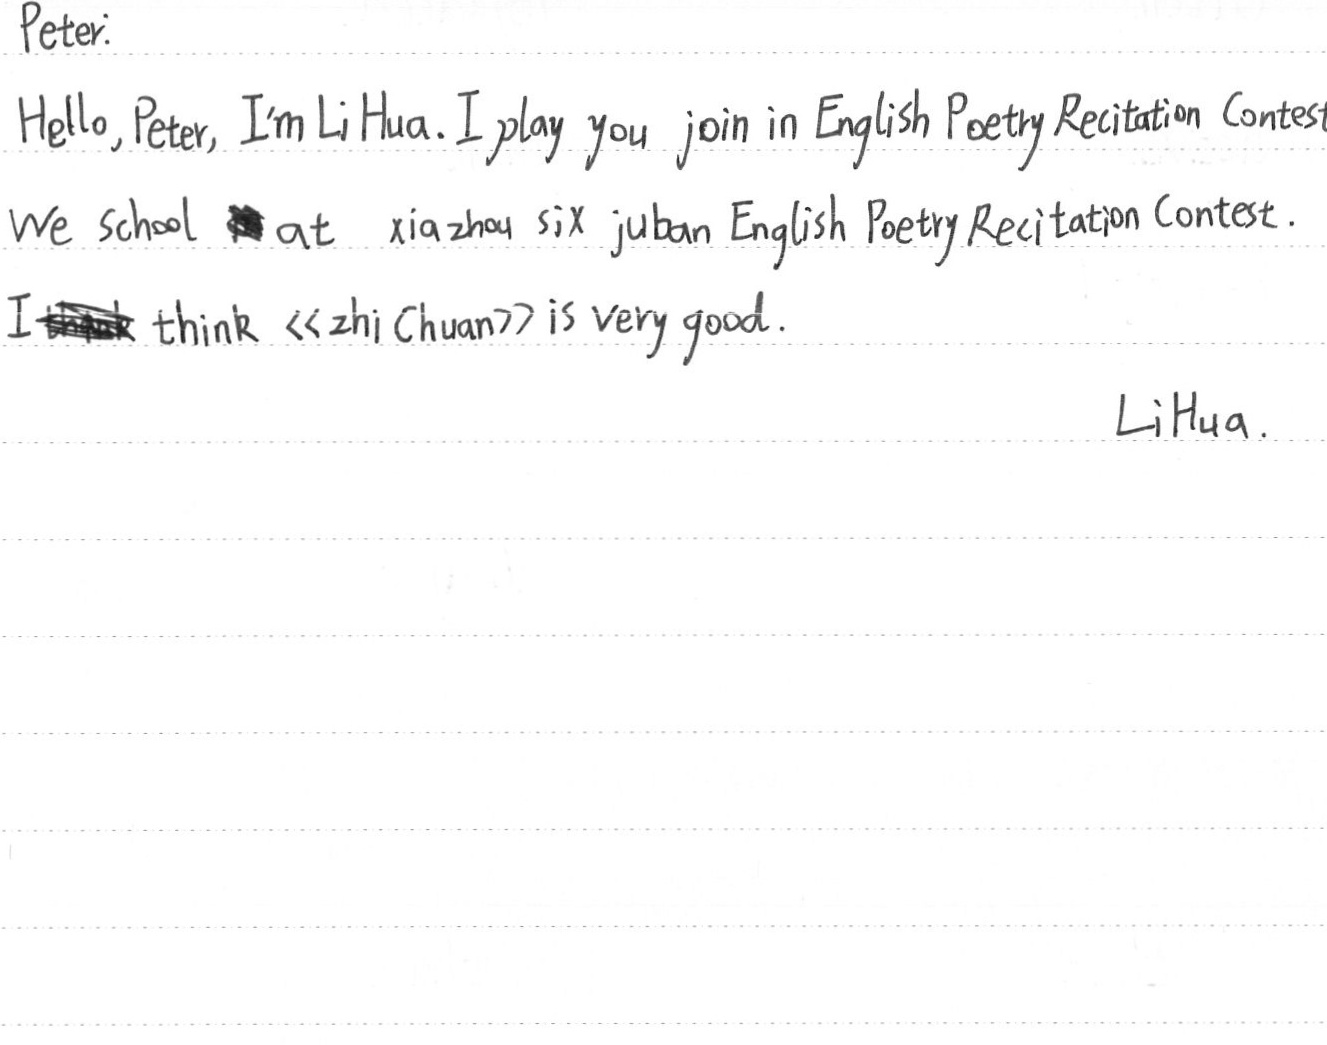 Peter:
Hello, Peter, I'm Li Hua. I play you join in English Poetry Recitation Contest
We school at xiazhou six juban English Poetry Recitation Contest.
I think <<zhi Chuan>> is very good.
Li Hua.